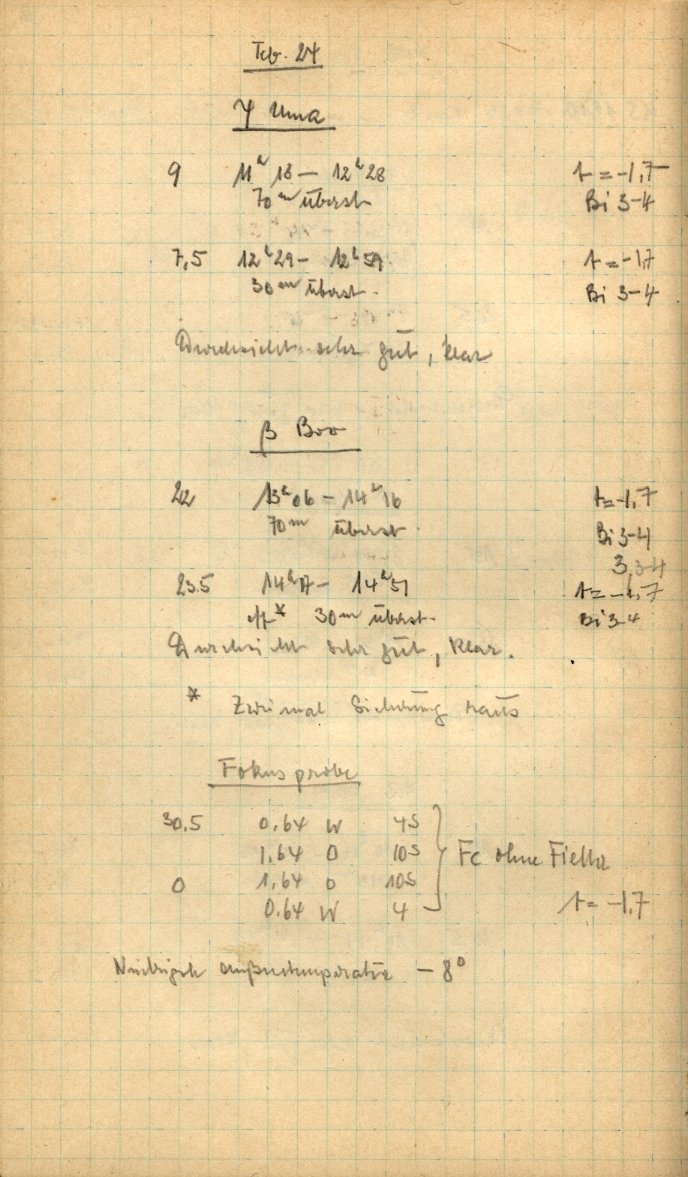 Feb. 24
γ Uma
9 11ʰ18 — 12ʰ28 t = -1,7
70ᵐ überst Bi 3-4
7,5 12ʰ29 — 12ʰ59 t = -1,7
30ᵐ überst. Bi 3-4
Durchsicht sehr gut, klar
β Boo
22 13ʰ06 — 14ʰ16 t = -1,7
70ᵐ überst. Bi 3-4
3,3-4
23.5 14ʰ17 — 14ʰ51 t = -1,7
eff* 30ᵐ überst. Bi 3-4
Durchsicht sehr gut, klar.
* Zweimal Sicherung raus
Fokusprobe
30,5 0.64 W 4s
1,64 O 10s Fc ohne Filter
0 1,64 O 10s
0.64 W 4 t = -1,7
Niedrigste Außentemperatur — 8°